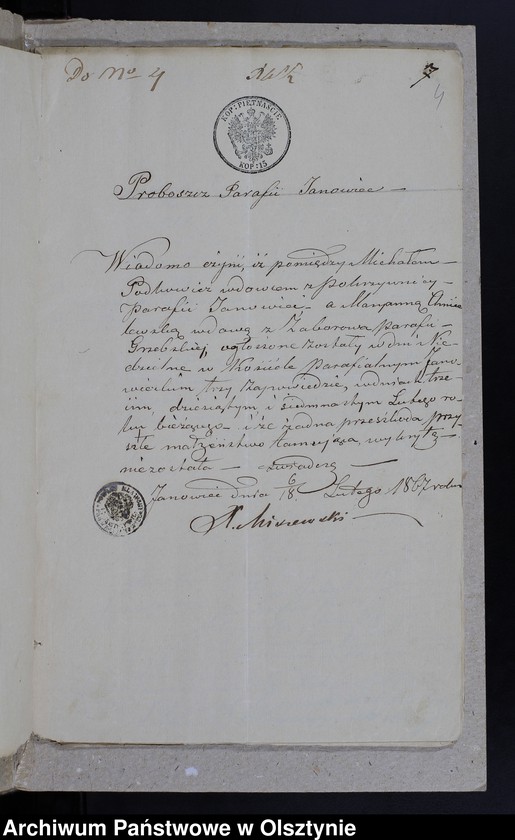 Do No 4
4
KOP: PIĘTNAŚCIE
KOP: 15
Proboszcz Parafii Janowiec
Wiadomo czyni, iż pomiędzy Michałem
wdowcem z Pokrzywnicy
Parafii Janowiec a Maryanną Chmie
lewską wdową z Zaborowa parafii
Grzebskiej, ogłoszone zostały w dni Nie
dzielne w Kościele Parafialnym Jano
wieckim trzy zapowiedzie, w dniach trze
cim, dziesiątym i siedmnastym Lutego ro
ku bieżącego i że żadna przeszkoda przy
szłe małżeństwo tamująca, wykrytą
niezostała
Janowiec dnia 6/18 Lutego 1867 roku
Archiwum Państwowe w Olsztynie